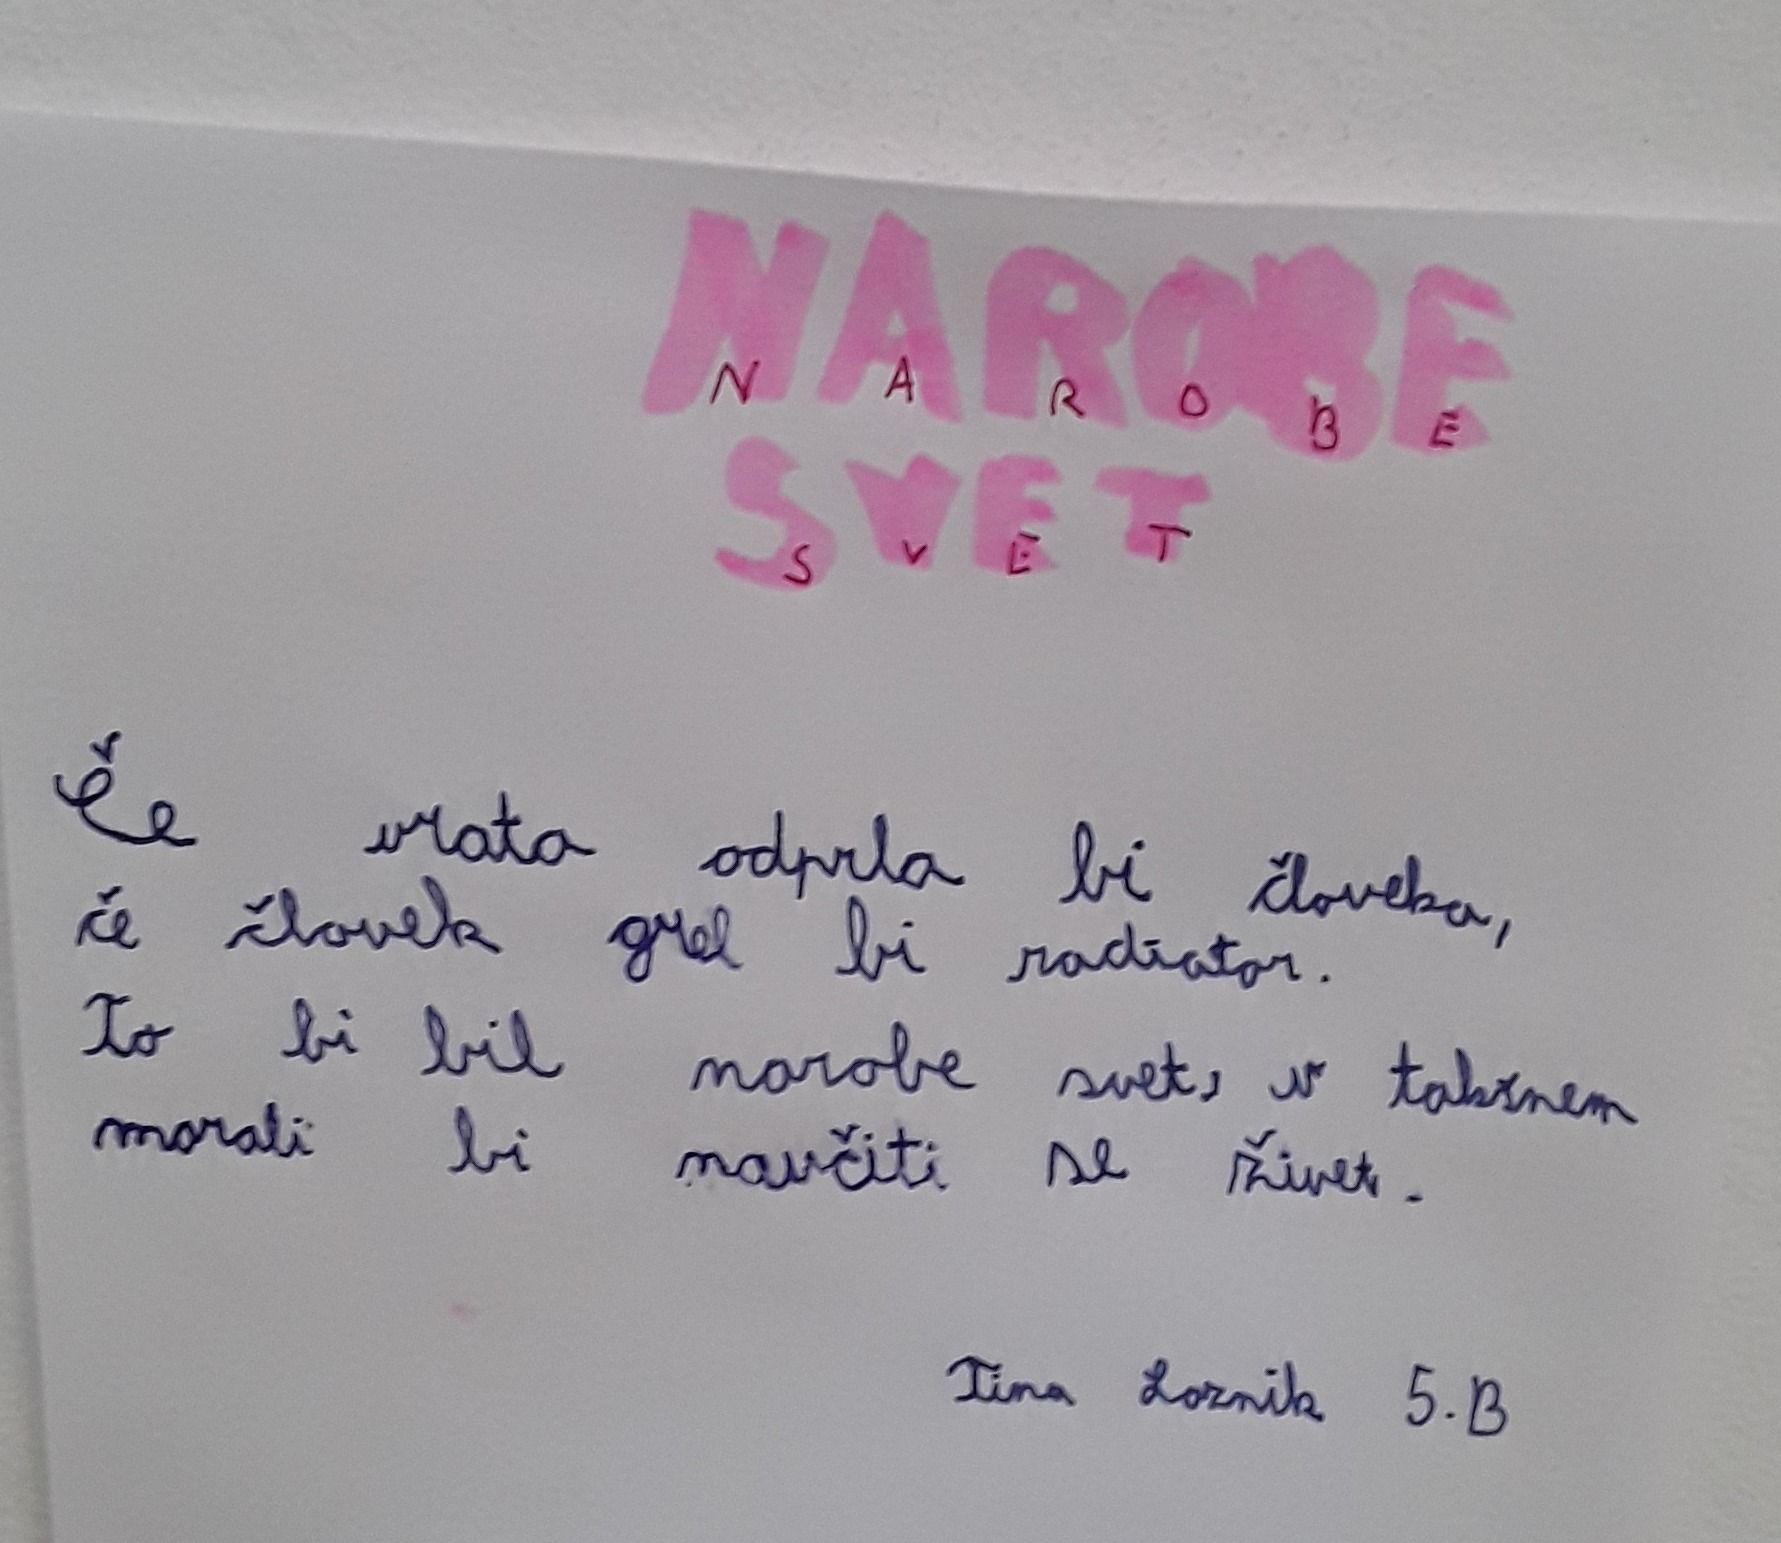 NAROBE
N A R O B E
SVET
S V E T
Če vrata odprla bi človeka,
če človek grel bi radiator.
To bi bil narobe svet, v takšnem
morali bi naučiti se živet.
Tina Loznik 5.B